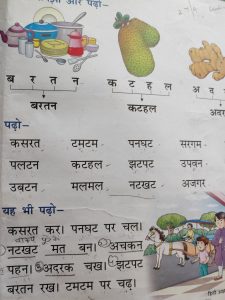 और पढ़ो–
ब र त न
क ट ह ल
अ द
बरतन
कटहल
अदर
पढ़ो–
कसरत टमटम पनघट सरगम
पलटन कटहल झटपट उपवन
उबटन मलमल नटखट अजगर
यह भी पढ़ो–
कसरत कर। पनघट पर चल।
नटखट मत बन। अचकन
पहन। अदरक चख। झटपट
बरतन रख। टमटम पर चढ़।